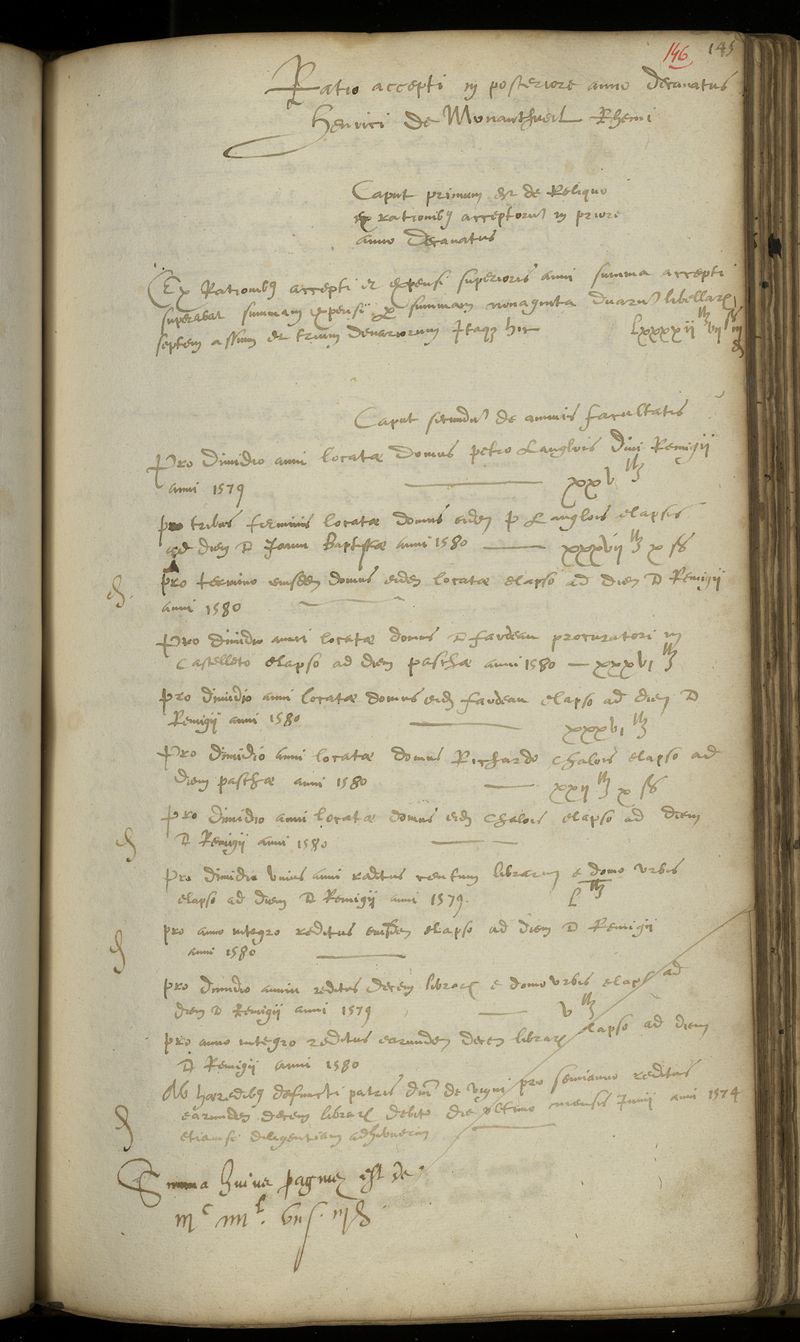 146 145
Ratio accepti in posteriore anno Decanatus
Henrici De Monantheuil Rhemi
Caput primum est de Reliquo
ex rationib9 acceptorū in priore
anno Decanatus
Ex Rationib9 accepti et expensi superioris anni summa accepti
superabat summam expensi summam nonaginta duarū libellarū
septem assium et trium denariorum Itaq3 hic lxxxxii lb vii ss iii d
Caput secundū de annuis facultatis
Pro dimidio anni locatæ domus petro Langlois Divi Remigii
anni 1579 xxv lb
pro tribus terminis locatæ domus eidem P Langlois elapsis
ad diem D Joann Baptistæ anni 1580 xxxvii lb x ss
pro termino eiusdem domus eidem locatæ elapso ad diem D Remigii
anni 1580
Pro dimidio anni locatæ domus D fardeau procuratori in
Castelleto elapso ad diem paschæ anni 1580 xxxvi lb
pro dimidio anni locatæ domus eidem fardeau elapso ad diem D
Remigii anni 1580 xxxvi lb
Pro dimidio anni locatæ domus Richardo Chalois elapso ad
diem paschæ anni 1580 xxii lb x ss
pro dimidio anni locatæ domus eidem Chalois elapso ad diem
D Remigii anni 1580
pro dimidio unius anni reditus centum librarum e domo urbis
elapso ad diem D Remigii anni 1579. L lb
pro anno integro reditus eiusdem elapso ad diem D Remigii
anni 1580
pro dimidio annui reditus decem librarū e domo urbis elapso ad
diem D Remigii anni 1579 v lb
pro anno integro reditus earundem decem librarū elapso ad diem
D Remigii anni 1580
Ab hæredib9 defuncti patris de vigni pro semianno reditus
earundem decem librarū debito die ultimo mensis Junii anni 1574
etiamsi diligentiam adhibuerim
Summa huius paginæ est de
iiic iiii l. vii s. iii d